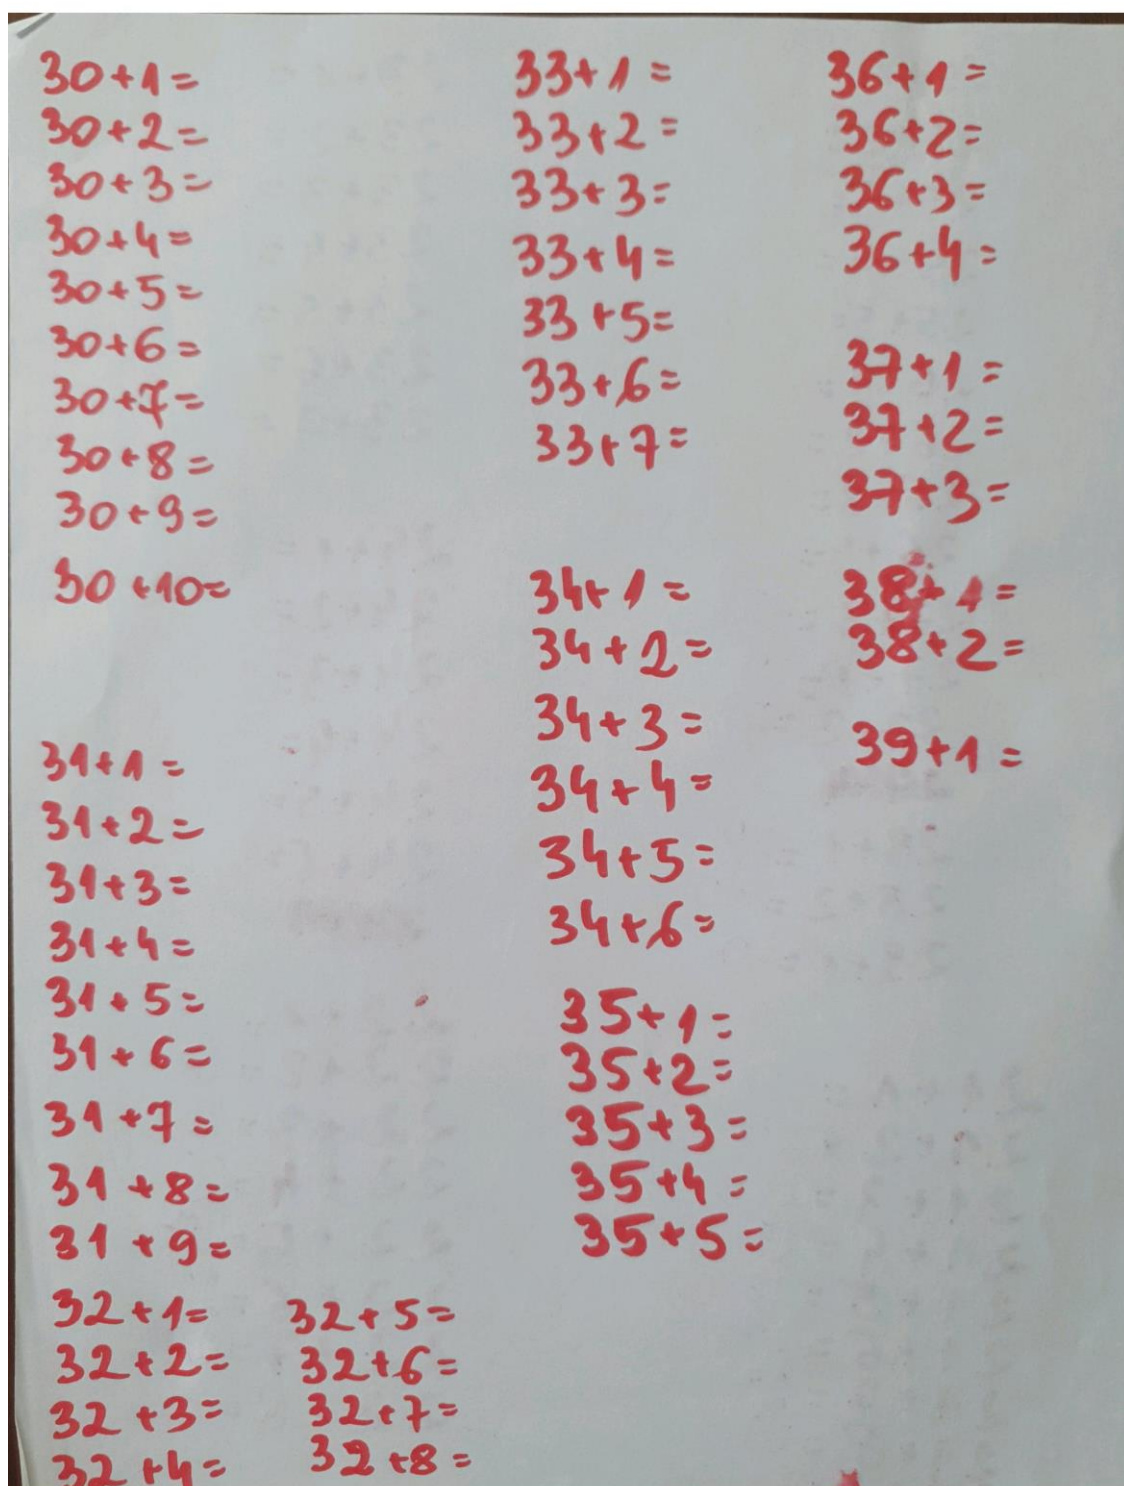 30+1=
30+2=
30+3=
30+4=
30+5=
30+6=
30+7=
30+8=
30+9=
30+10=
31+1=
31+2=
31+3=
31+4=
31+5=
31+6=
31+7=
31+8=
31+9=
32+1=
32+2=
32+3=
32+4=
32+5=
32+6=
32+7=
32+8=
33+1=
33+2=
33+3=
33+4=
33+5=
33+6=
33+7=
34+1=
34+2=
34+3=
34+4=
34+5=
34+6=
35+1=
35+2=
35+3=
35+4=
35+5=
36+1=
36+2=
36+3=
36+4=
37+1=
37+2=
37+3=
38+1=
38+2=
39+1=